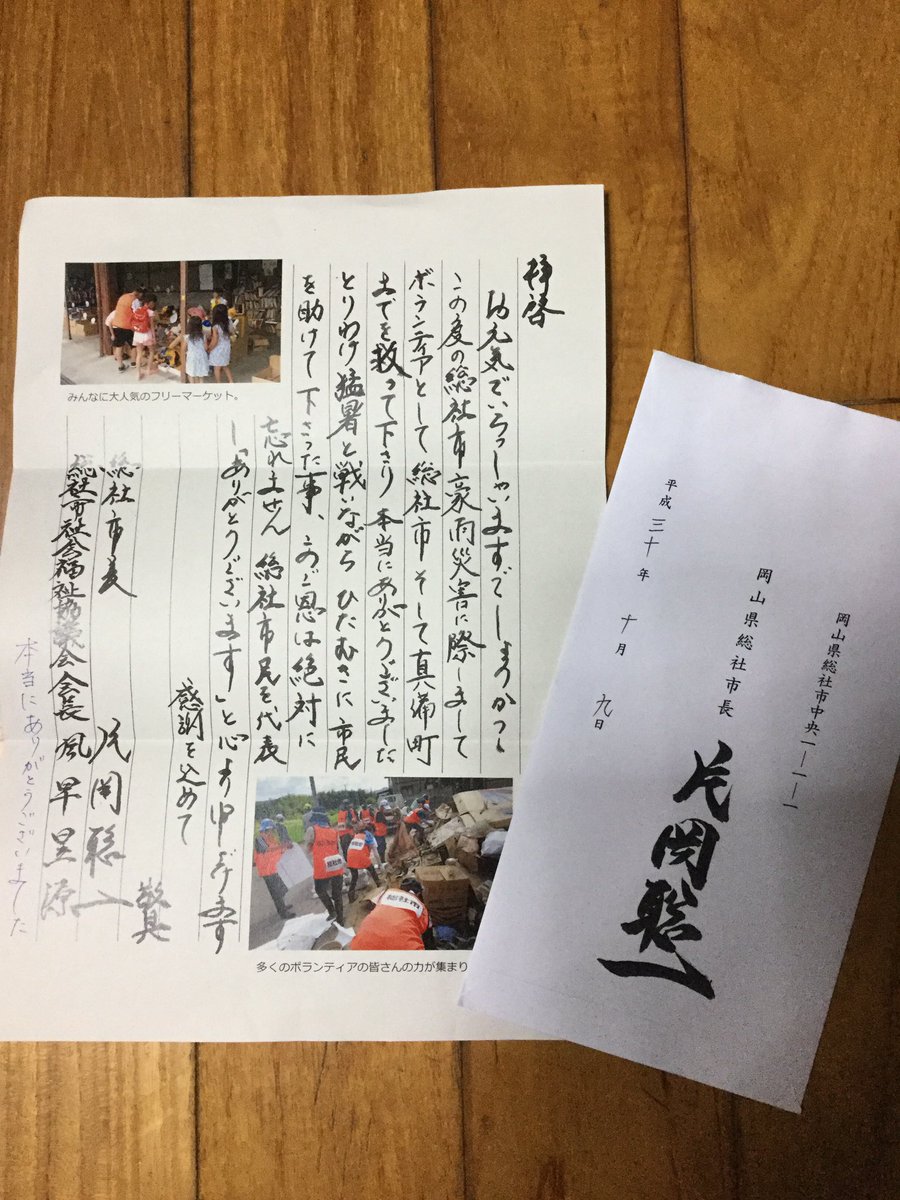 拝啓
お元気でいらっしゃいますでしょうか。
この度の総社市豪雨災害に際しまして
ボランティアとして総社市そして真備町
までを救って下さり本当にありがとうございました
とりわけ猛暑と戦いながらひたむきに市民
を助けて下さった事、このご恩は絶対に
忘れません 総社市民を代表
し「ありがとうございます」と心より申しあげます
感謝を込めて
敬具
総社市長 片岡聡一
総社市社会福祉協議会会長 風早昱源
本当にありがとうございました
みんなに大人気のフリーマーケット。
総社市
多くのボランティアの皆さんの力が集まり
岡山県総社市中央一ー一ー一
岡山県総社市長
片岡聡一
平成三十年十月九日